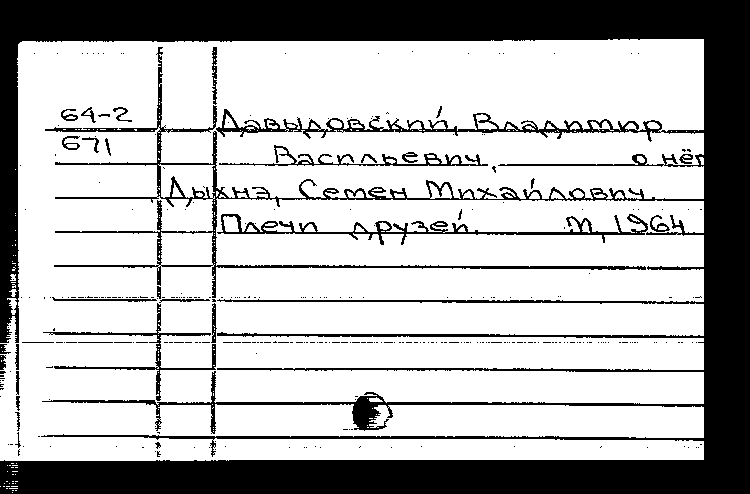 64-2 Давыдовский, Владимир
671 Васильевич, о нём
Дыхнэ, Семен Михайлович.
Плечи друзей. М, 1964